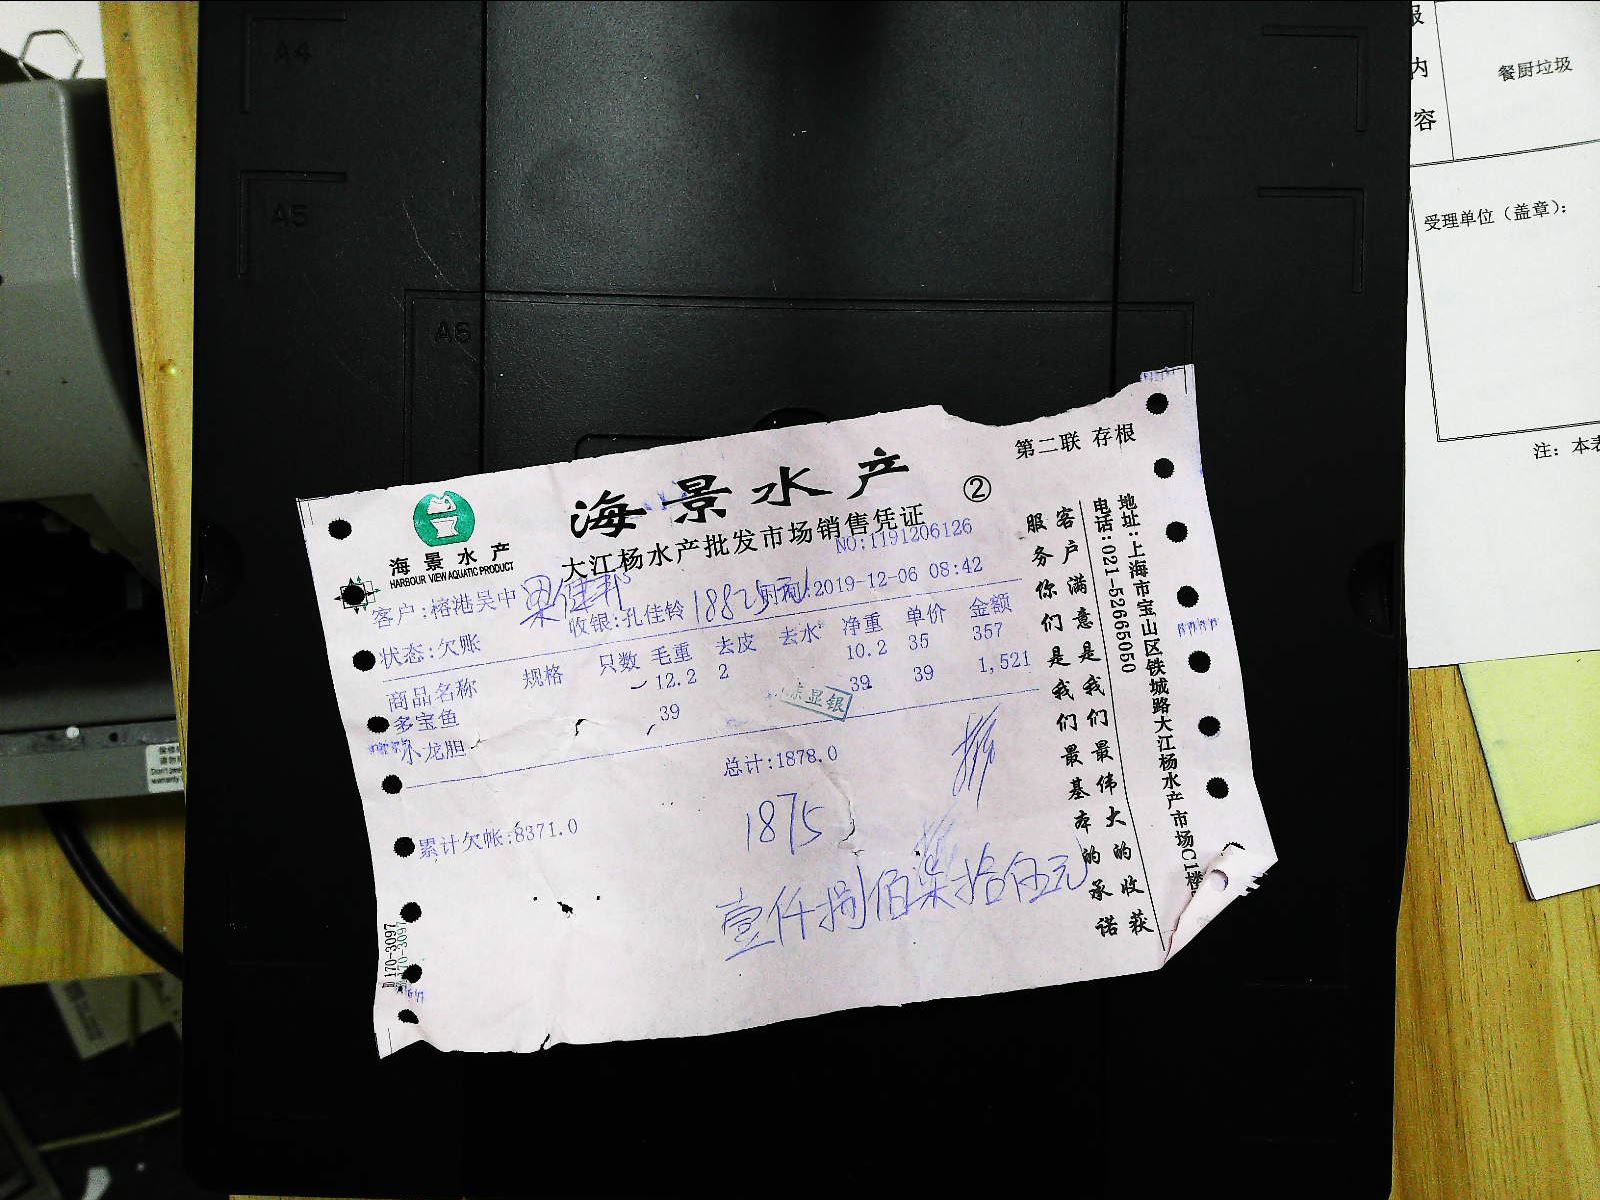 A4
A5
A6
报
内
容
餐厨垃圾
受理单位（盖章）：
注：本表
第二联 存根
海景水产
②
大江杨水产批发市场销售凭证
海景水产
HARBOUR VIEW AQUATIC PRODUCT
NO:1191206126
客户:榕港吴中
收银:孔佳铃
时间:2019-12-06 08:42
状态:欠账
商品名称 规格 只数 毛重 去皮 去水 净重 单价 金额
多宝鱼 12.2 2 10.2 35 357
小龙胆 39 39 39 1,521
总计:1878.0
累计欠帐:8371.0
1875
壹仟捌佰柒拾伍元
客户满意是我们最伟大的收获
服务你们是我们最基本的承诺
地址:上海市宝山区铁城路大江杨水产市场C1楼
电话:021-52665050
170-3097